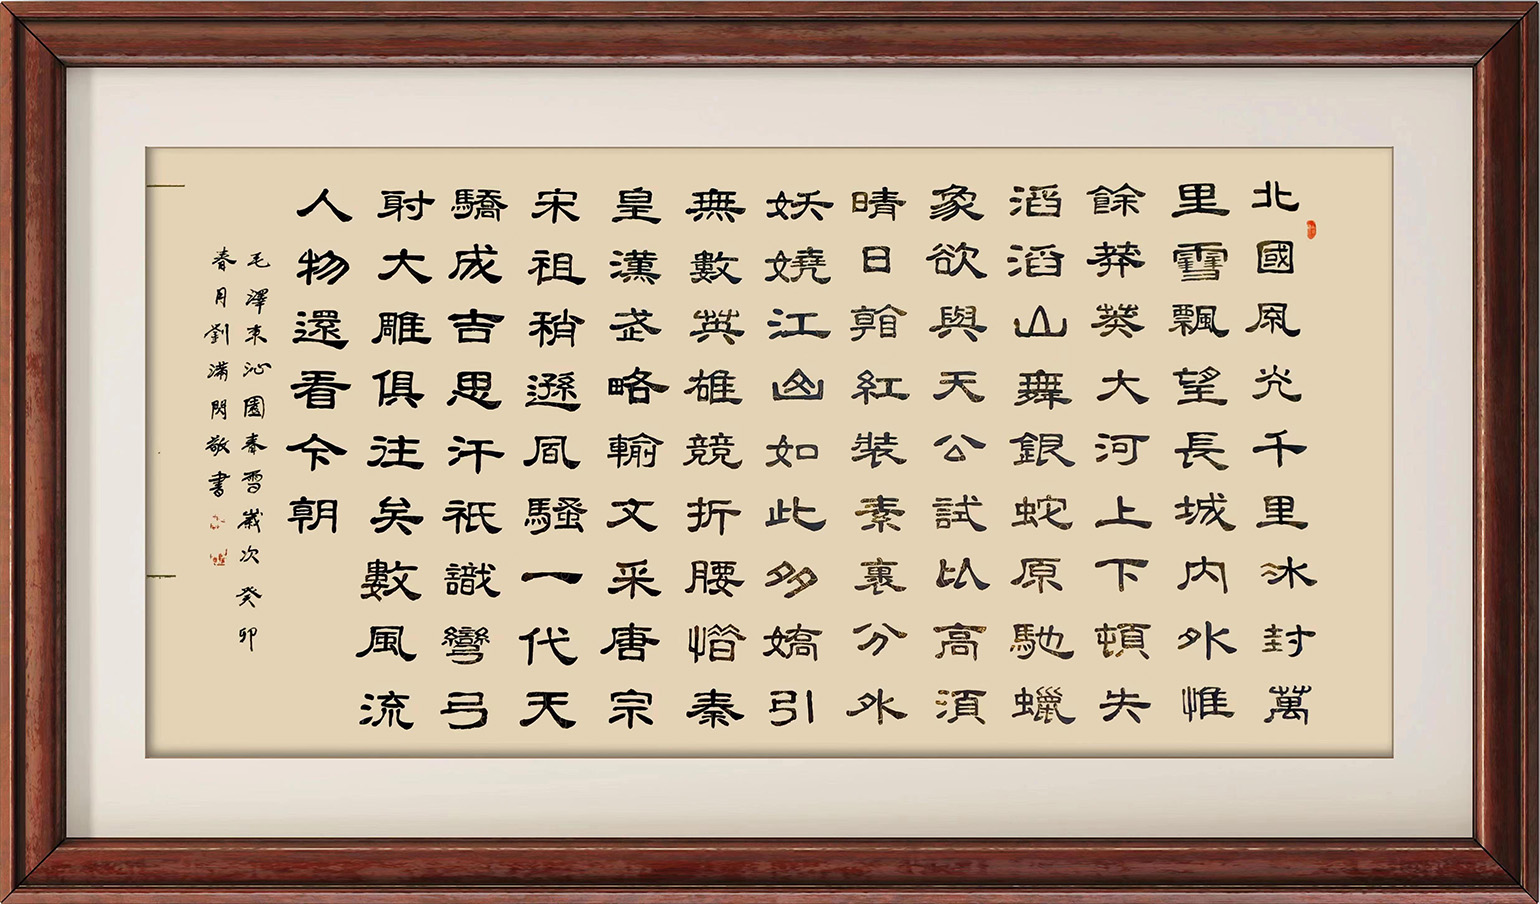 北國風光千里冰封萬
里雪飄望長城內外惟
餘莽莽大河上下頓失
滔滔山舞銀蛇原馳蠟
象欲與天公試比高須
晴日看紅裝素裹分外
妖嬈江山如此多嬌引
無數英雄競折腰惜秦
皇漢武略輸文采唐宗
宋祖稍遜風騷一代天
驕成吉思汗衹識彎弓
射大雕俱往矣數風流
人物還看今朝
毛澤東沁園春雪歲次癸卯
春月劉滿閃敬書